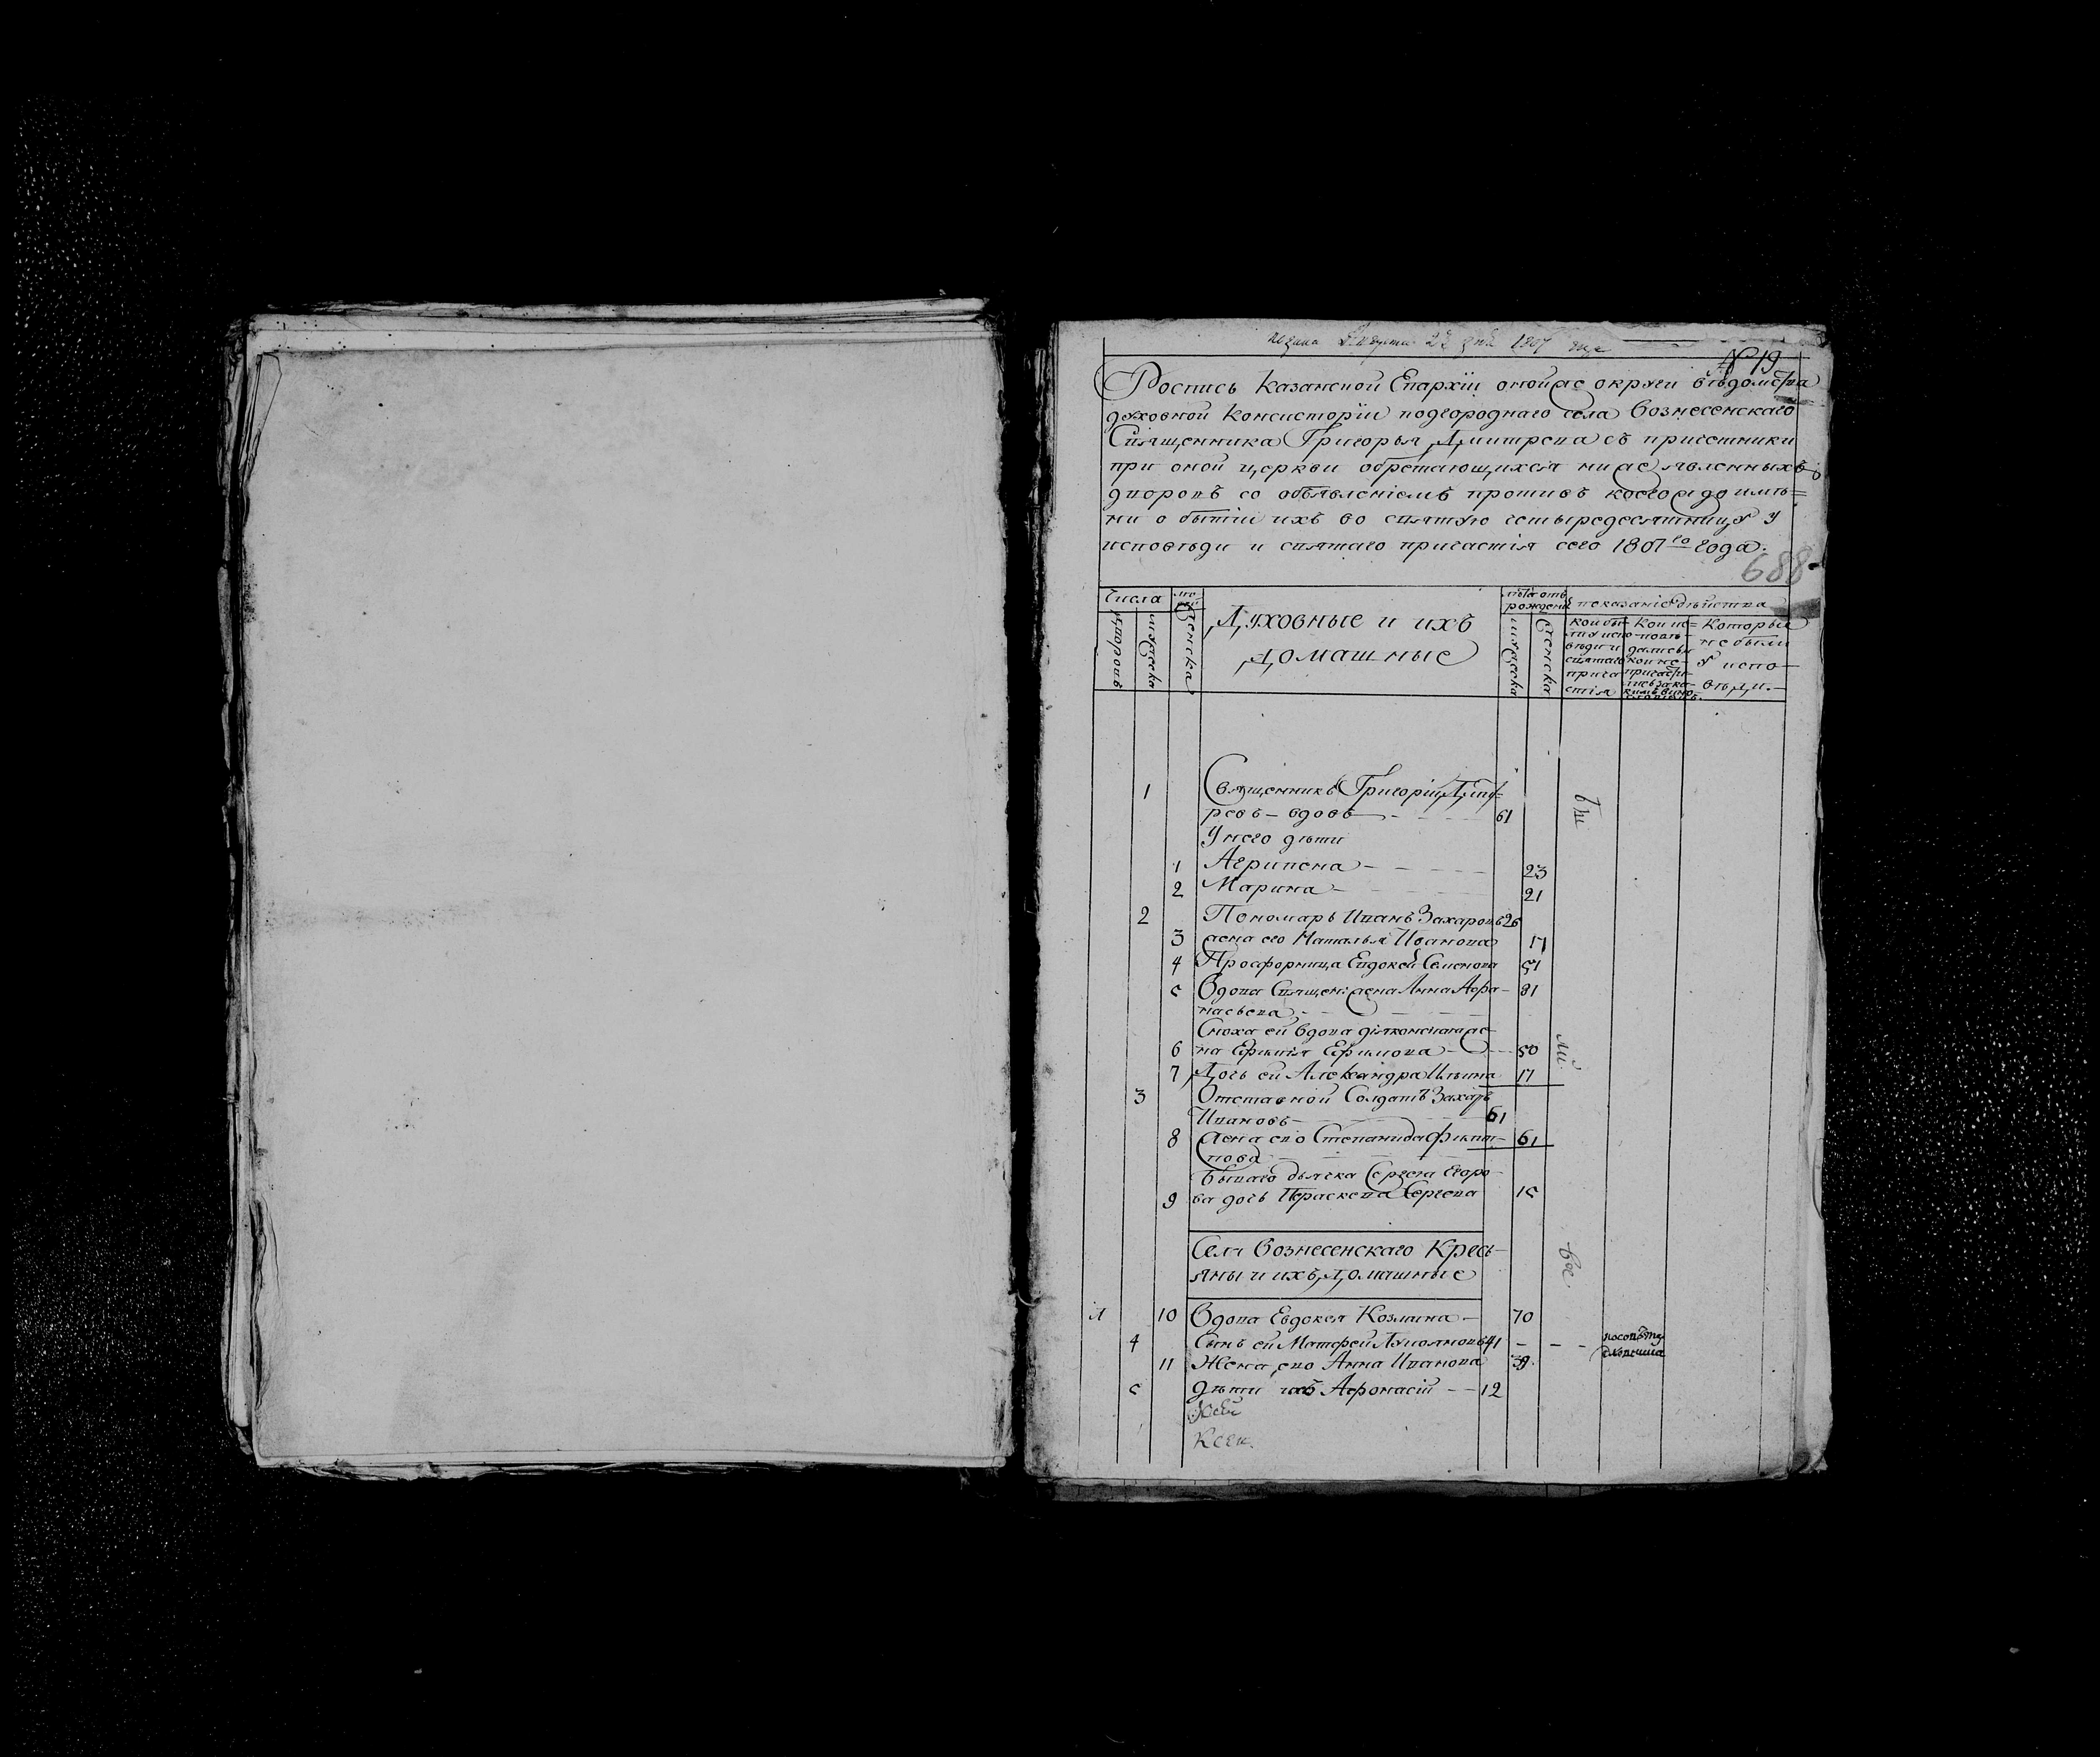 Августа 22 дня 1807 года
№ 19
Роспись Казанской Епархїи оной же округи вѣдомства
духовной Консисторїи подгороднаго села Вознесенскаго
Священника Григорья Дмитрева съ причетники
при оной церкви обретающихся нижеявленныхъ
дворовъ со объявленїемъ противъ коегождо имѣ=
ни о бытїи ихъ во святую четыредесятницу у
исповѣди и святаго причастїя сего 1807го года.
688
Числа
людей
лѣта отъ рожденїя
показанїе дѣйства
дворовъ
мужеска
женска
Духовные и ихъ
домашные
мужеска
женска
кои бы-
ли у испо-
вѣди и
святаго
прича
стїя
кои ис=
повѣ-
дались
кои не-
причасти-
которые
не были
у испо-
вѣди.
1 Священникъ Григорїй Дмит=
ревъ - вдовъ 61
У него дѣти
1 Агрипена 23
2 Марина 21
2 Пономарь Иванъ Захаровъ 26
3 жена его Наталья Иванова 17
4 Просфорница Евдокея Семенова 51
5 Вдова Священ: жена Анна Афа- 81
насьева
Сноха ей вдова дїяконская же-
6 на Ефимїя Ефимова 50
7 Дочь ей Александра Ильина 17
3 Отставной Солдатъ Захаръ
Ивановъ 61
8 Жена ево Степанида Филип- 61
пова
Бывшаго дьячка Сергея Егоро-
9 ва дочь Параскева Сергева 15
Села Вознесенскаго Кресь-
яны и ихъ домашные
1 10 Вдова Евдокея Козмина 70
4 Сынъ ей Матфей Лукояновъ 41
11 Жена ево Анна Иванова 39
5 Дѣти ихъ Афонасїй 12
бы
ли
все